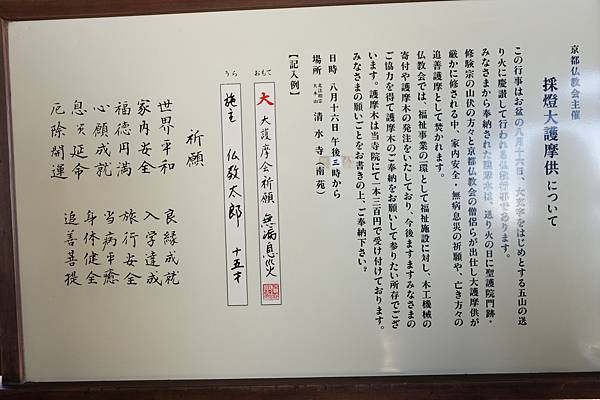 京都仏教会主催
採燈大護摩供 について
この行事はお盆の八月十六日、大文字をはじめとする五山の送
り火に慶讃して行われる あります。
みなさまから奉納された護摩木は、送り火の日に聖護院門跡・
修験宗の山伏の方々と京都仏教会の僧侶らが出仕し大護摩供が
厳かに修される中、家内安全・無病息災の祈願や、亡き方々の
追善護摩として焚かれます。
仏教会では、福祉事業の一環として福祉施設に対し、木工機械の
寄付や護摩木の発注をいたしており、今後ますますみなさまの
ご協力を得て護摩木のご奉納をお願いして参りたい所存でござ
います。護摩木は当寺院にて一本三百円で受け付けております。
みなさまの願いごとをお書きの上、ご奉納下さい。
日時 八月十六日 午後三時から
場所 清水寺(南苑)
【記入例】
おもて
大 大護摩会祈願 無病息災
うら
施主 仏教太郎 十五才
祈願
世界平和 良縁成就
家内安全 入学達成
福徳円満 旅行安全
心願成就 当病平癒
息災延命 身体健全
厄除開運 追善菩提